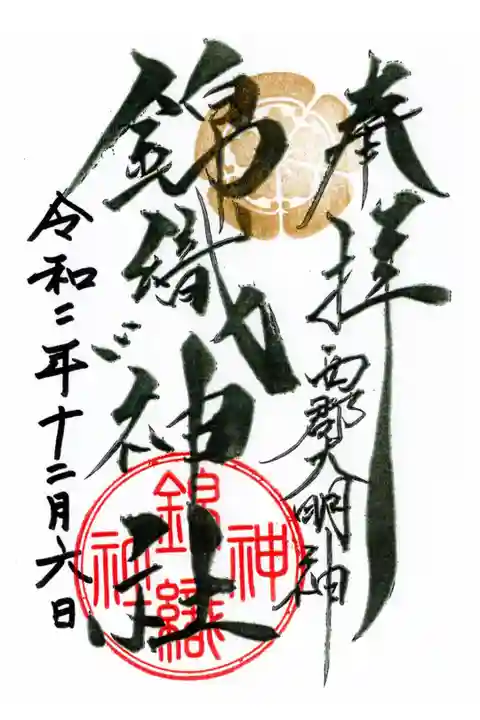 奉拝
西郡大明神
錦織神社
錦織神社
令和二年十二月六日